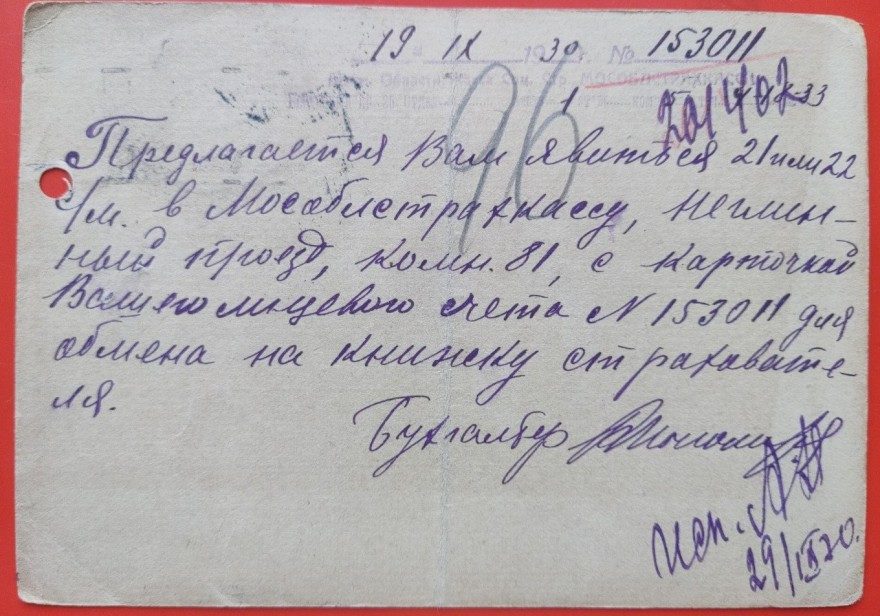 19 IX 1930 г. № 153011
МОСОБЛСТРАХКАССА
1
201402
96
Предлагается Вам явиться 21 или 22
с/м. в Мособлстрахкассу, Неглин-
ный проезд, комн. 81, с карточкой
Вашего лицевого счета N 153011 для
обмена на книжку страховате-
ля.
Бухгалтер
Исп.
29/IX 30.